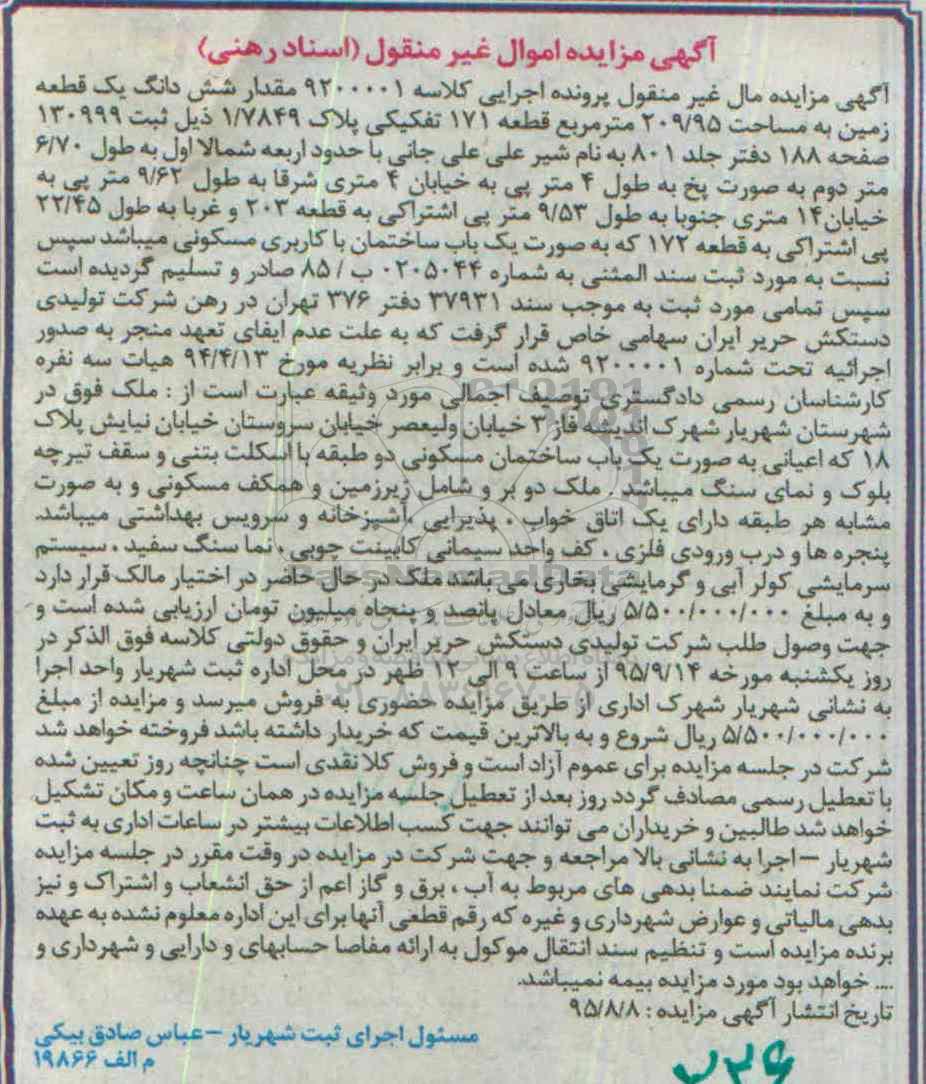 آگهی مزایده اموال غیر منقول (اسناد رهنی)
آگهی مزایده مال غیر منقول پرونده اجرایی کلاسه ۹۲۰۰۰۰۱ مقدار شش دانگ یک قطعه
زمین به مساحت ۲۰۹/۹۵ مترمربع قطعه ۱۷۱ تفکیکی پلاک ۱/۷۸۴۹ ذیل ثبت ۱۳۰۹۹۹
صفحه ۱۸۸ دفتر جلد ۸۰۱ به نام شیر علی علی جانی با حدود اربعه شمالا اول به طول ۶/۷۰
متر دوم به صورت پخ به طول ۴ متر پی به خیابان ۴ متری شرقا به طول ۹/۶۲ متر پی به
خیابان۱۴ متری جنوبا به طول ۹/۵۳ متر پی اشتراکی به قطعه ۲۰۳ و غربا به طول ۲۲/۴۵
پی اشتراکی به قطعه ۱۷۲ که به صورت یک باب ساختمان با کاربری مسکونی میباشد سپس
نسبت به مورد ثبت سند المثنی به شماره ۰۲۰۵۰۴۴ ب / ۸۵ صادر و تسلیم گردیده است
سپس تمامی مورد ثبت به موجب سند ۳۷۹۳۱ دفتر ۳۷۶ تهران در رهن شرکت تولیدی
دستکش حریر ایران سهامی خاص قرار گرفت که به علت عدم ایفای تعهد منجر به صدور
اجرائیه تحت شماره ۹۲۰۰۰۰۱ شده است و برابر نظریه مورخ ۹۴/۴/۱۳ هیات سه نفره
کارشناسان رسمی دادگستری توصیف اجمالی مورد وثیقه عبارت است از : ملک فوق در
شهرستان شهریار شهرک اندیشه فاز ۳ خیابان ولیعصر خیابان سروستان خیابان نیایش پلاک
۱۸ که اعیانی به صورت یک باب ساختمان مسکونی دو طبقه با اسکلت بتنی و سقف تیرچه
بلوک و نمای سنگ میباشد . ملک دو بر و شامل زیرزمین و همکف مسکونی و به صورت
مشابه هر طبقه دارای یک اتاق خواب ، پذیرایی ،آشپزخانه و سرویس بهداشتی میباشد.
پنجره ها و درب ورودی فلزی ، کف واحد سیمانی کابینت چوبی ، نما سنگ سفید ، سیستم
سرمایشی کولر آبی و گرمایشی بخاری می باشد ملک در حال حاضر در اختیار مالک قرار دارد
و به مبلغ ۵/۵۰۰/۰۰۰/۰۰۰ ریال معادل پانصد و پنجاه میلیون تومان ارزیابی شده است و
جهت وصول طلب شرکت تولیدی دستکش حریر ایران و حقوق دولتی کلاسه فوق الذکر در
روز یکشنبه مورخه ۹۵/۹/۱۴ از ساعت ۹ الی ۱۲ ظهر در محل اداره ثبت شهریار واحد اجرا
به نشانی شهریار شهرک اداری از طریق مزایده حضوری به فروش میرسد و مزایده از مبلغ
۵/۵۰۰/۰۰۰/۰۰۰ ریال شروع و به بالاترین قیمت که خریدار داشته باشد فروخته خواهد شد
شرکت در جلسه مزایده برای عموم آزاد است و فروش کلا نقدی است چنانچه روز تعیین شده
با تعطیل رسمی مصادف گردد روز بعد از تعطیل جلسه مزایده در همان ساعت و مکان تشکیل
خواهد شد طالبین و خریداران می توانند جهت کسب اطلاعات بیشتر در ساعات اداری به ثبت
شهریار – اجرا به نشانی بالا مراجعه و جهت شرکت در مزایده در وقت مقرر در جلسه مزایده
شرکت نمایند ضمنا بدهی های مربوط به آب ، برق و گاز اعم از حق انشعاب و اشتراک و نیز
بدهی مالیاتی و عوارض شهرداری و غیره که رقم قطعی آنها برای این اداره معلوم نشده به عهده
برنده مزایده است و تنظیم سند انتقال موکول به ارائه مفاصا حسابهای و دارایی و شهرداری و
.... خواهد بود مورد مزایده بیمه نمیباشد.
تاریخ انتشار آگهی مزایده : ۹۵/۸/۸
مسئول اجرای ثبت شهریار – عباس صادق بیکی
م الف ۱۹۸۶۶